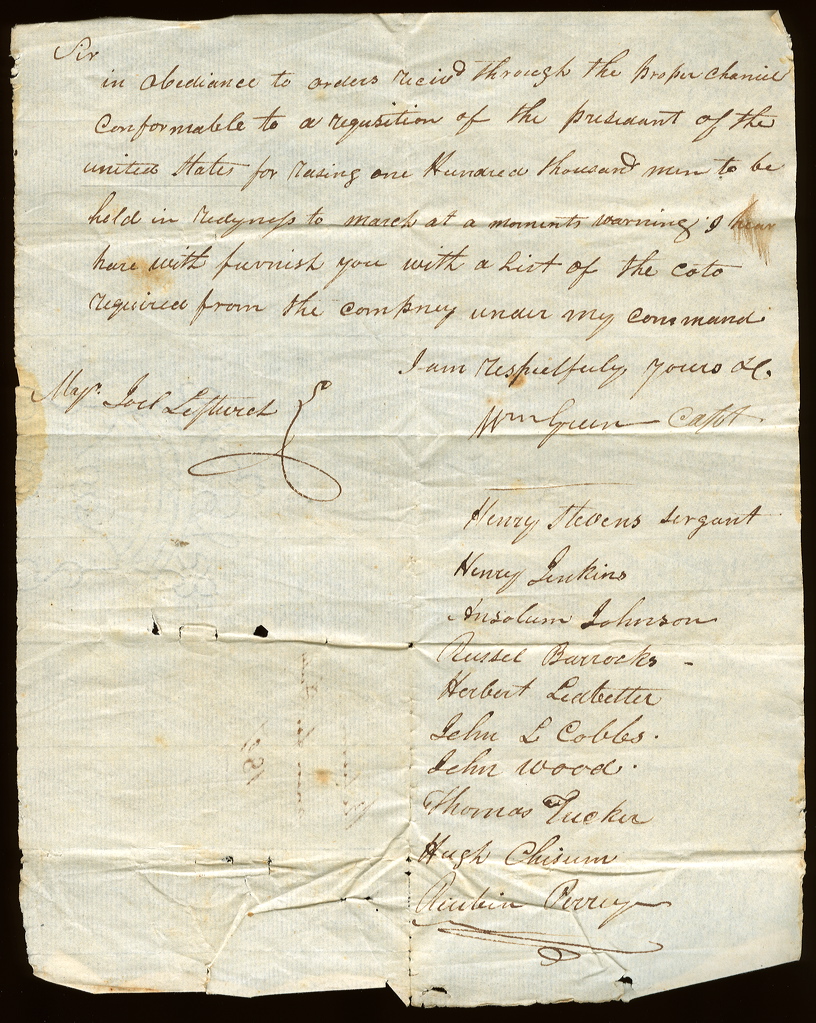 Sir
in obediance to orders recievd through the proper channel
Conformable to a requsition of the presedant of the
united States for rasing one Hundred thousand men to be
held in redyness to march at a moments warning I
hare with furnish you with a list of the coto
required from the compney under my command
I am respectfuly yours &C.
Majr. Joel Lefturch
Wm Green Capt
Henry Stevens sergant
Henry Jenkins
Ansolum Johnson
Russel Barrocks -
Herbert Ledbetter
John L Cobbs.
John Wood.
Thomas Tucker
Hugh Chisum
Reubin Perrey